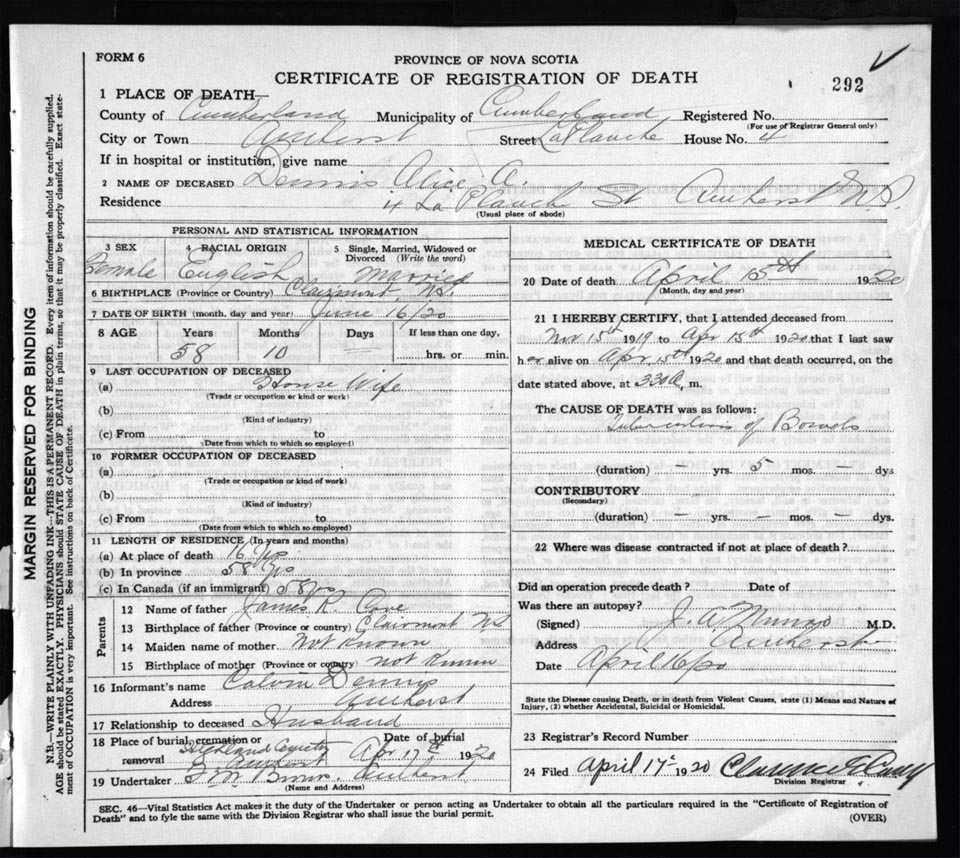 FORM 6
PROVINCE OF NOVA SCOTIA
CERTIFICATE OF REGISTRATION OF DEATH
292
1 PLACE OF DEATH—
County of Cumberland Municipality of Cumberland Registered No.
(For use of Registrar General only)
City or Town Amherst Street LaPlanche House No. 4
If in hospital or institution, give name
2 NAME OF DECEASED Dennis Alice A.
Residence 4 La Planch St Amherst N.S.
(Usual place of abode)
PERSONAL AND STATISTICAL INFORMATION
3 SEX 4 RACIAL ORIGIN 5 Single, Married, Widowed or Divorced (Write the word)
Female English Married
6 BIRTHPLACE (Province or Country) Clairmont, N.S.
7 DATE OF BIRTH (month, day and year) June 16/20
8 AGE Years Months Days If less than one day,
58 10 — hrs. or min.
9 LAST OCCUPATION OF DECEASED
(a) House Wife
(Trade or occupation or kind or work)
(b)
(Kind of industry)
(c) From to
(Date from which to which so employed)
10 FORMER OCCUPATION OF DECEASED
(a)
(Trade or occupation or kind or work)
(b)
(Kind of industry)
(c) From to
(Date from which to which so employed)
11 LENGTH OF RESIDENCE (In years and months)
(a) At place of death 16 Yrs
(b) In province 58 Yrs
(c) In Canada (if an immigrant) 58 Yrs
Parents
12 Name of father James R. Cove
13 Birthplace of father (Province or country) Clairmont NS
14 Maiden name of mother Not Known
15 Birthplace of mother (Province or country) Not Known
16 Informant's name Calvin Dennis
Address Amherst
17 Relationship to deceased Husband
18 Place of burial, cremation or removal Date of burial
Highland Cemetery Amherst Apr 17th 1920
19 Undertaker Amherst
(Name and Address)
MEDICAL CERTIFICATE OF DEATH
20 Date of death April 15th 1920
(Month, day and year)
21 I HEREBY CERTIFY, that I attended deceased from
Nov 15th 1919 to Apr 15th 1920 that I last saw
her alive on Apr 15th 1920 and that death occurred, on the
date stated above, at 330 a, m.
The CAUSE OF DEATH was as follows:
Tuberculosis of Bowels
(duration) — yrs. 5 mos. — dys
CONTRIBUTORY
(Secondary)
(duration) — yrs. — mos. — dys.
22 Where was disease contracted if not at place of death?
Did an operation precede death? Date of
Was there an autopsy?
(Signed) J. A. Munro M.D.
Address Amherst
Date April 16/20
State the Disease causing Death, or in death from Violent Causes, state (1) Means and Nature of
Injury, (2) whether Accidental, Suicidal or Homicidal.
23 Registrar's Record Number
24 Filed April 17th 1920
Division Registrar
SEC. 46—Vital Statistics Act makes it the duty of the Undertaker or person acting as Undertaker to obtain all the particulars required in the "Certificate of Registration of
Death" and to fyle the same with the Division Registrar who shall issue the burial permit. (OVER)
MARGIN RESERVED FOR BINDING
N.B.—WRITE PLAINLY WITH UNFADING INK—THIS IS A PERMANENT RECORD. Every item of information should be carefully supplied.
AGE should be stated EXACTLY. PHYSICIANS should STATE CAUSE OF DEATH in plain terms, so that it may be properly classified. Exact state-
ment of OCCUPATION is very important. See instructions on back of Certificate.